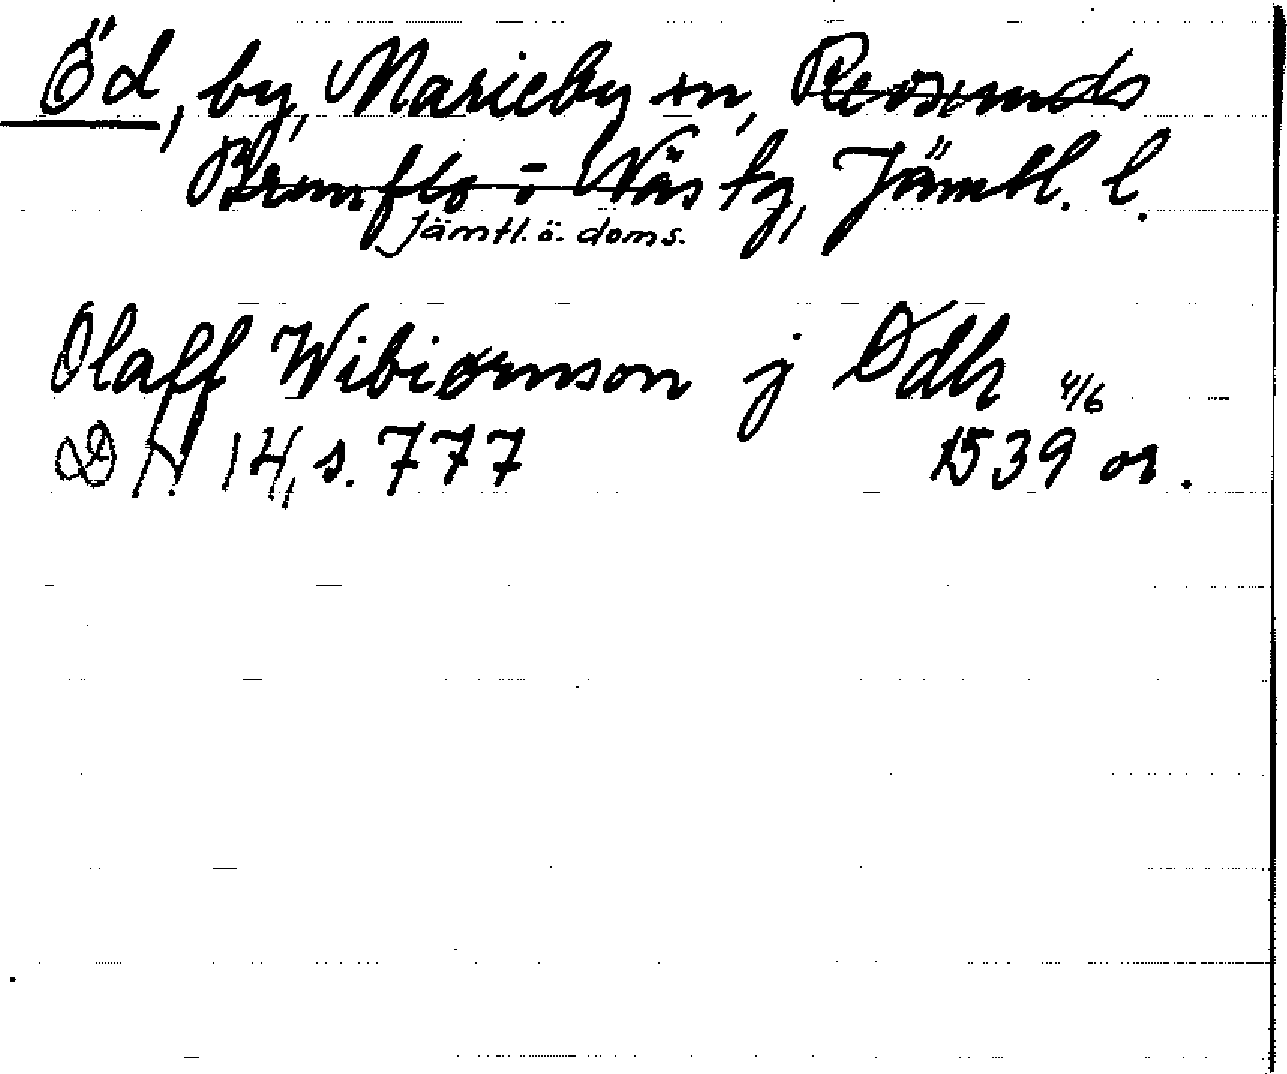 Öd, by, Marieby sn, Revsunds
Brunflo o Näs tg, Jämtl. l.
Jämtl. ö. doms.
Olaff Wibiørnson j Ødh 4/6
DN 14, s. 777 1539 or.